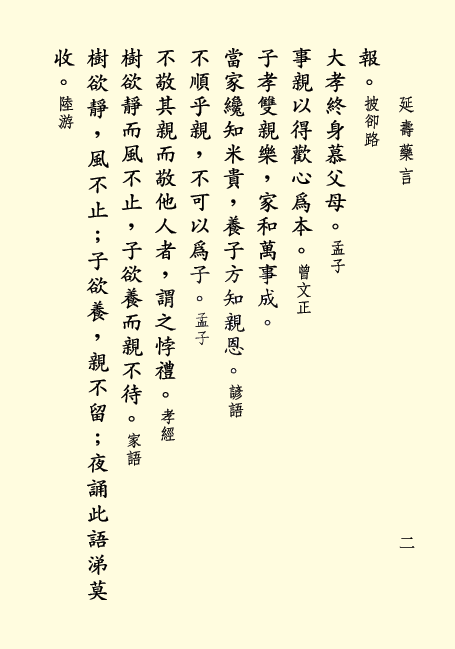 延壽藥言
報。披卻路
大孝終身慕父母。孟子
事親以得歡心爲本。曾文正
子孝雙親樂，家和萬事成。
當家纔知米貴，養子方知親恩。諺語
不順乎親，不可以爲子。孟子
不敬其親而敬他人者，謂之悖禮。孝經
樹欲靜而風不止，子欲養而親不待。家語
樹欲靜，風不止；子欲養，親不留；夜誦此語涕莫
收。陸游
二